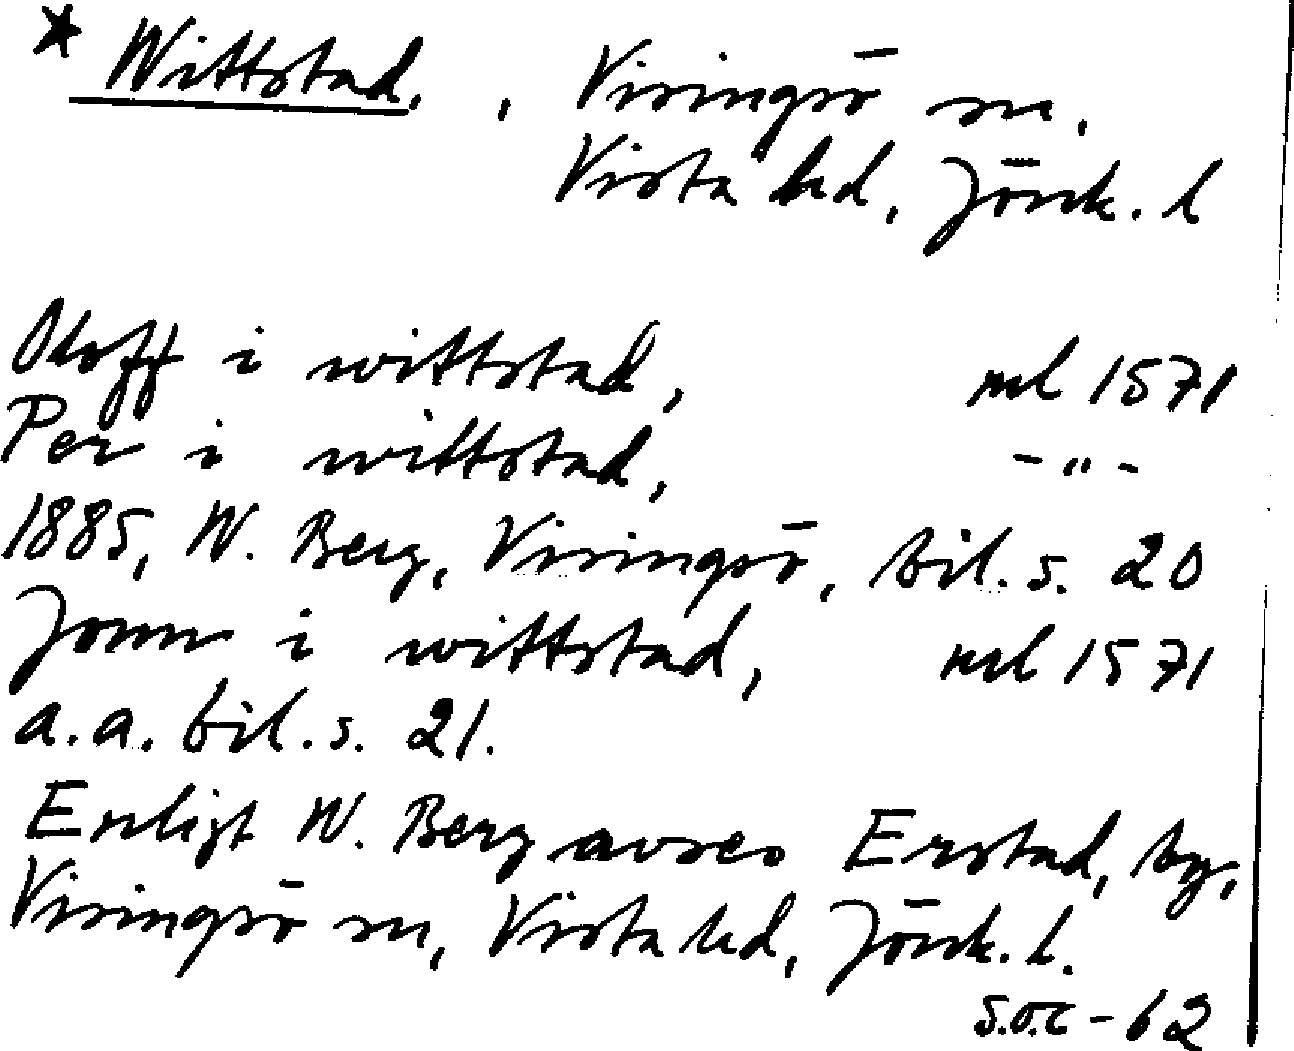 * Wittstad, , Visingsö sn,
Vista hd, Jönk. l
Oloff i wittstad, ml 1571
Per i wittstad, -"-
1885, W. Berg, Visingsö, bil. s. 20
Jonn i wittstad, ml 1571
a.a. bil. s. 21.
Enligt W. Berg avses Erstad, by,
Visingsö sn, Vista hd, Jönk. l.
S.O.C - 62